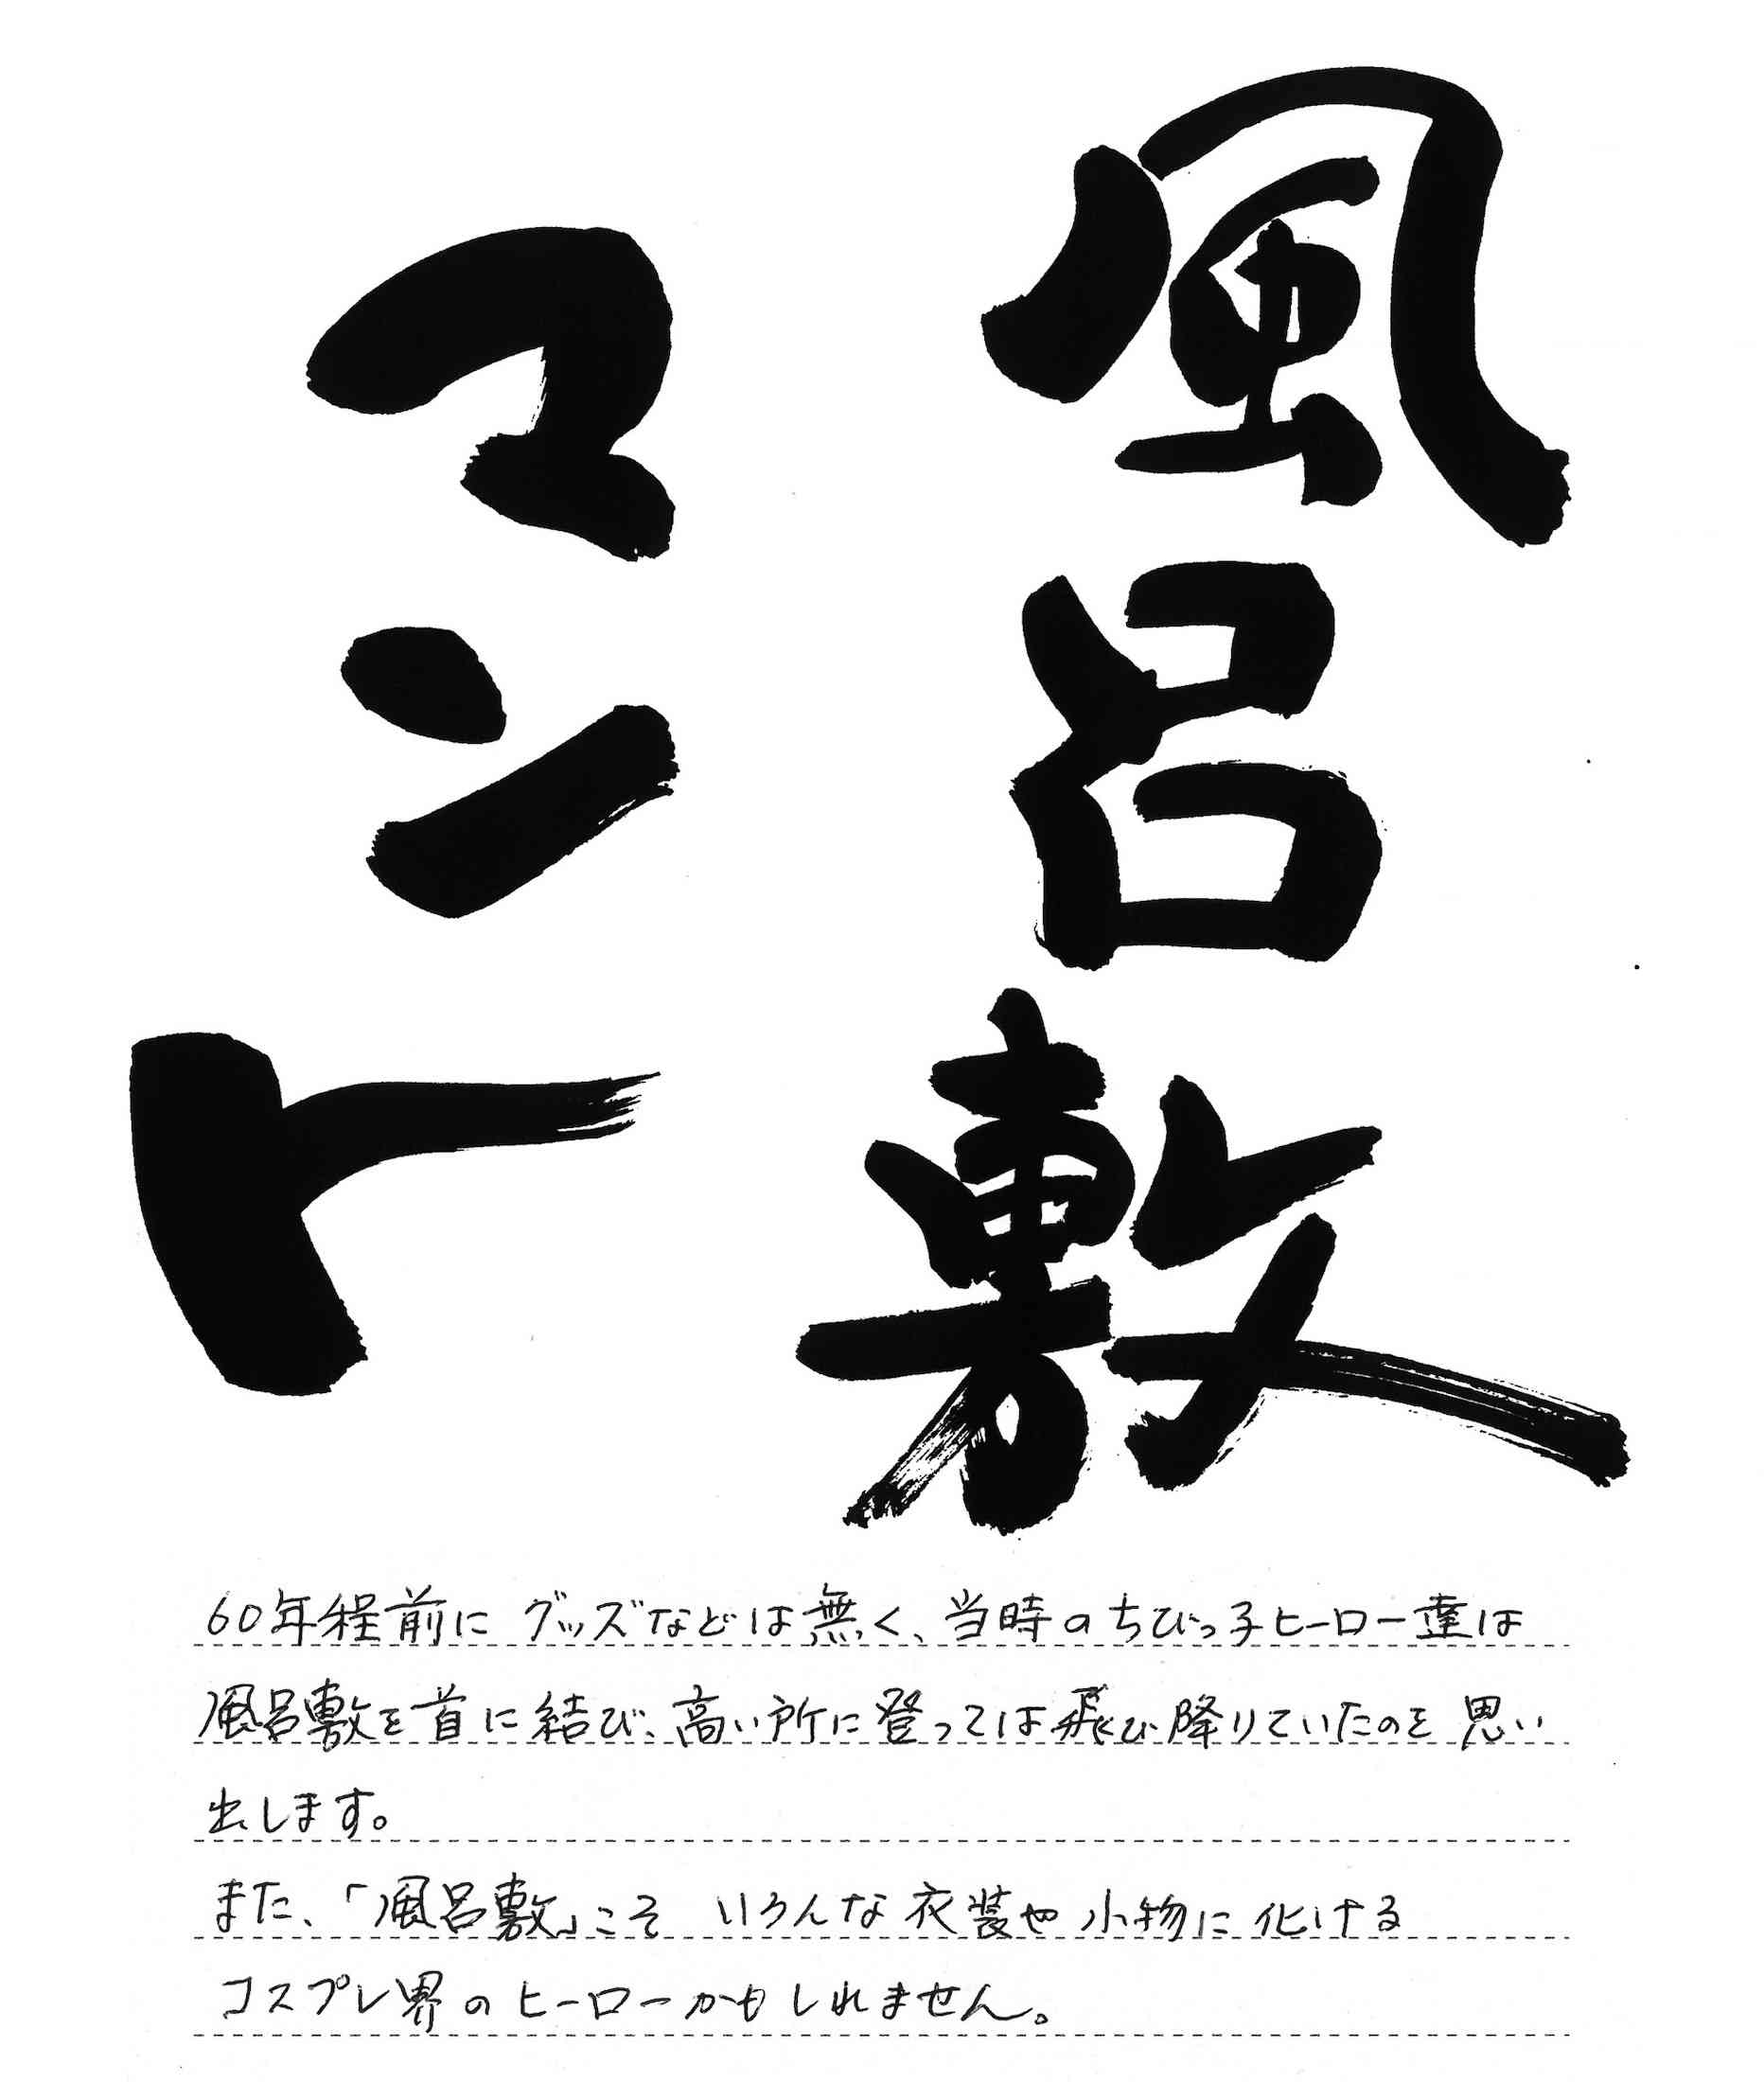 風呂敷
マント
60年程前に グッズなどは無く、当時のちびっ子ヒーロー達は
風呂敷を首に結び、高い所に登っては飛び降りていたのを思い
出します。
また、「風呂敷」こそ いろんな衣装や小物に化ける
コスプレ界のヒーローかもしれません。